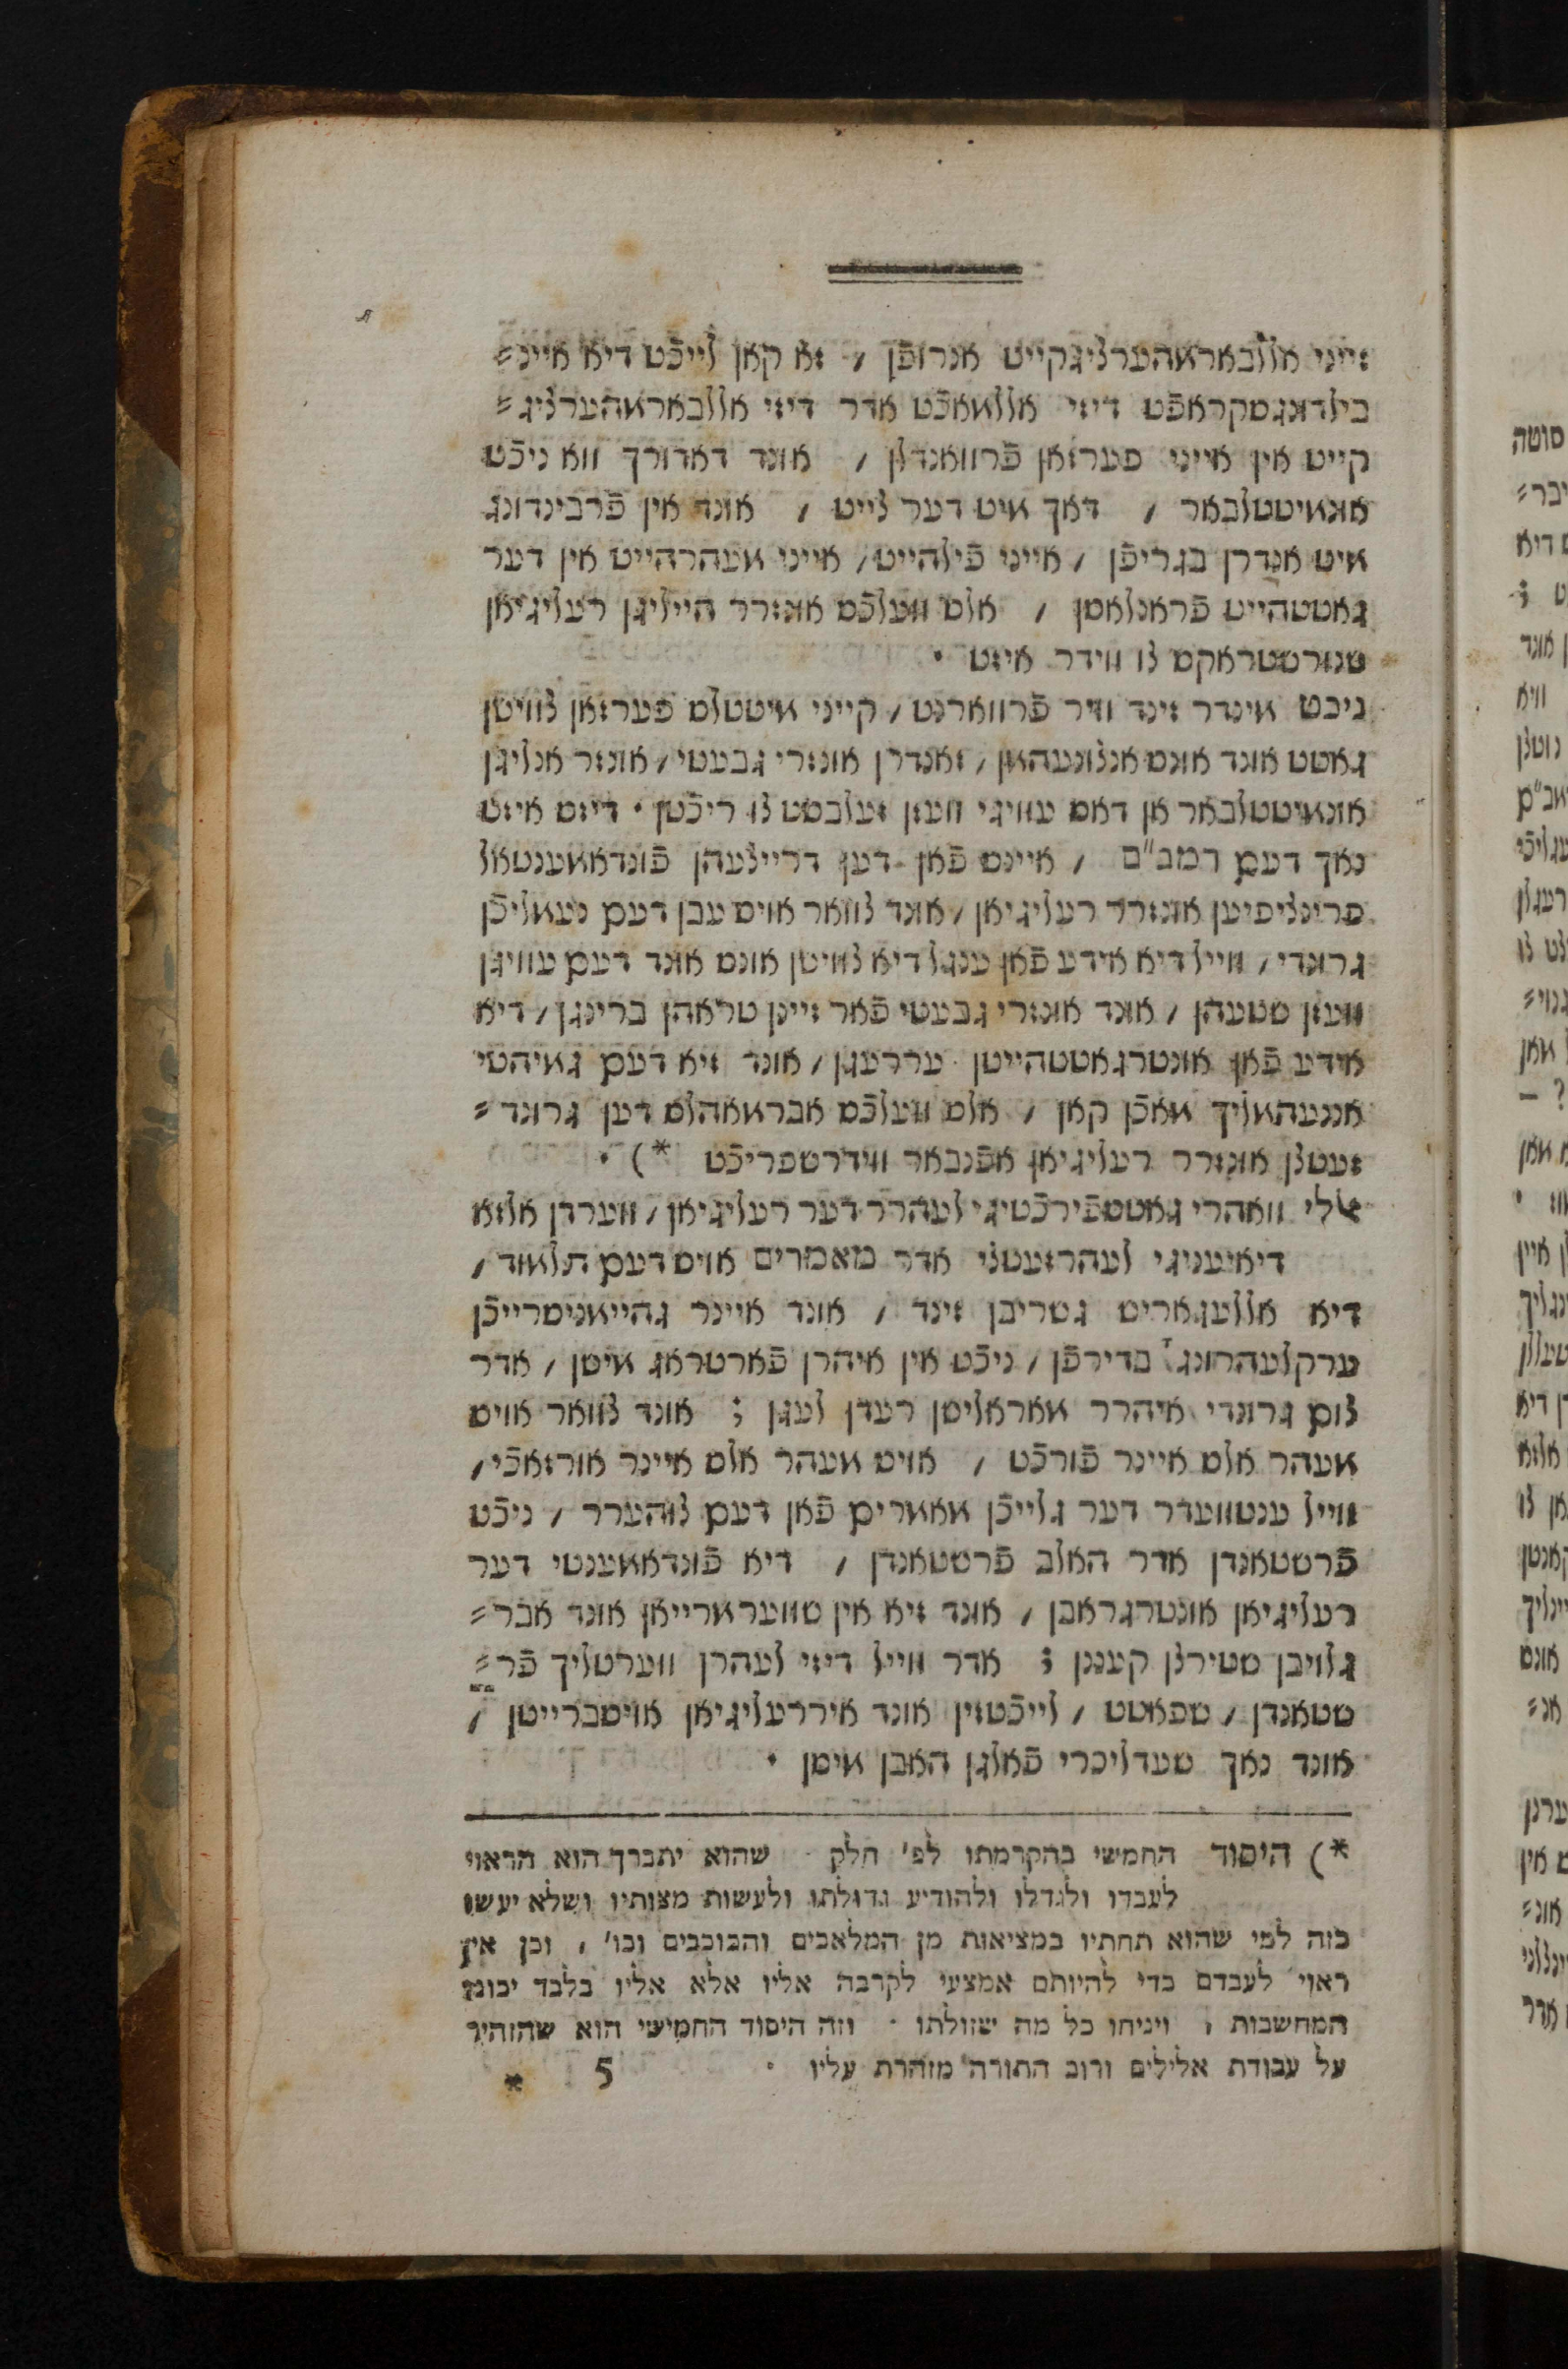 זייני אללבארמהערליגקייט אנרופֿן / זא קאן לייכֿט דיא איינ=
בילדונגסקראפֿט דיזי אללמאכֿט אדר דיזי אללבארמהערליג=
קייט אין אייני פערזאן פֿרוואנדלן / אונד דאדורך ווא ניכֿט
אונמיטטלבאר / דאך מיט דער לייט / אונד אין פֿרבינדונג
מיט אנדרן בגריפֿן / אייני פֿילהייט / אייני מעהרהייט אין דער
גאטטהייט פֿראנלאסן / אלס וועלכֿס אונזרר הייליגן רעליגיאן
שנורסטראקס לו ווידר איזט ·
ניכט מינדר זינד וויר פֿרווארנט / קייני מיטטלס פערזאן לווישן
גאטט אונד אונס אנלונעהמן / זאנדרן אונזרי גבעטי / אונזר אנליגן
אונמיטטלבאר אן דאס עוויגי וועזן זעלבסט לו ריכֿטן · דיזס איזט
נאך דעם רמב"ם / איינס פֿאן דען דרייצעהן פֿונדאמענטאל
פרינציפיען אונזרר רעליגיאן / אונד לוואר אויס עבן דעם נעמליכֿן
גרונדי / ווייל דיא אידע פֿאן ענגל דיא לווישן אונס אונד דעם עוויגן
וועזן שטעהן / אונד אונזרי גבעטי פֿאר זיינן טראהן ברינגן / דיא
אידע פֿאן אונטרגאטטהייטן עררעגן / אונד זיא דעם גמיהטי
אנגעהמליך מאכֿן קאן / אלס וועלכֿס אבראהמס דען גרונד=
זעטלן אונזרר רעליגיאן אפֿנבאר ווידרשפריכֿט *) ·
אלי וואהרי גאטטספֿירכֿטיגי לעהרר דער רעליגיאן / ווערדן אלזא
דיאיעניגי לעהרזעטלי אדר מאמרים אויס דעם תלמוד /
דיא אללעגאריש גשריבן זינד / אונד איינר גהיימניסרייכֿן
ערקלעהרונג בדירפֿן / ניכֿט אין איהרן פֿארטראג מישן / אדר
לום גרונדי איהרר מאראלישן רעדן לעגן ; אונד לוואר אויס
מעהר אלס איינר פֿורכֿט / אויס מעהר אלס איינר אורזאכֿי /
ווייל ענטוועדר דער גלייכֿן מאמרים פֿאן דעם לוהערר / ניכֿט
פֿרשטאנדן אדר האלב פֿרשטאנדן / דיא פֿונדאמענטי דער
רעליגיאן אונטרגראבן / אונד זיא אין שווערמרייאן אונד אבר=
גלויבן שטירלן קעננן ; אדר ווייל דיזי לעהרן ווערטליך פֿר=
שטאנדן / שפאטט / לייכֿטזין אונד איררעליגיאן אויסברייטן /
אונד נאך שעדליכרי פֿאלגן האבן מיסן ·
*) היסוד החמישי בהקדמתו לפ' חלק שהוא יתברך הוא הראוי
לעבדו ולגדלו ולהודיע גדולתו ולעשות מצותיו ושלא יעשו
כזה למי שהוא תחתיו במציאות מן המלאכים והכוכבים וכו' , וכן אין
ראוי לעבדם כדי להיותם אמצעי לקרבה אליו אלא אליו בלבד יכונו
המחשבות , ויניחו כל מה שזולתו · וזה היסוד החמישי הוא שהזהיר
על עבודת אלילים ורוב התורה מזהרת עליו ·
5 *